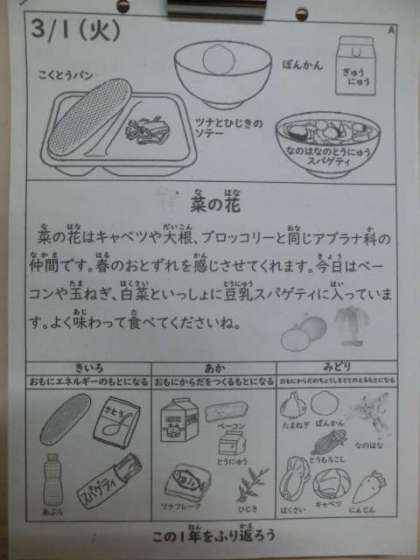 3/1(火)
A
こくとうパン
ぽんかん
ぎゅう
にゅう
ツナとひじきの
ソテー
なのはなのとうにゅう
スパゲティ
菜の花
菜の花はキャベツや大根、ブロッコリーと同じアブラナ科の
仲間です。春のおとずれを感じさせてくれます。今日はベー
コンや玉ねぎ、白菜といっしょに豆乳スパゲティに入っていま
す。よく味わって食べてくださいね。
きいろ
あか
みどり
おもにエネルギーのもとになる
おもにからだをつくるもとになる
おもにからだのちょうしをととのえるもとになる
さとう
ベーコン
とうにゅう
たまねぎ
ぽんかん
なのはな
とうもろこし
あぶら
スパゲティ
ツナフレーク
ひじき
はくさい
キャベツ
にんじん
この1年をふり返ろう